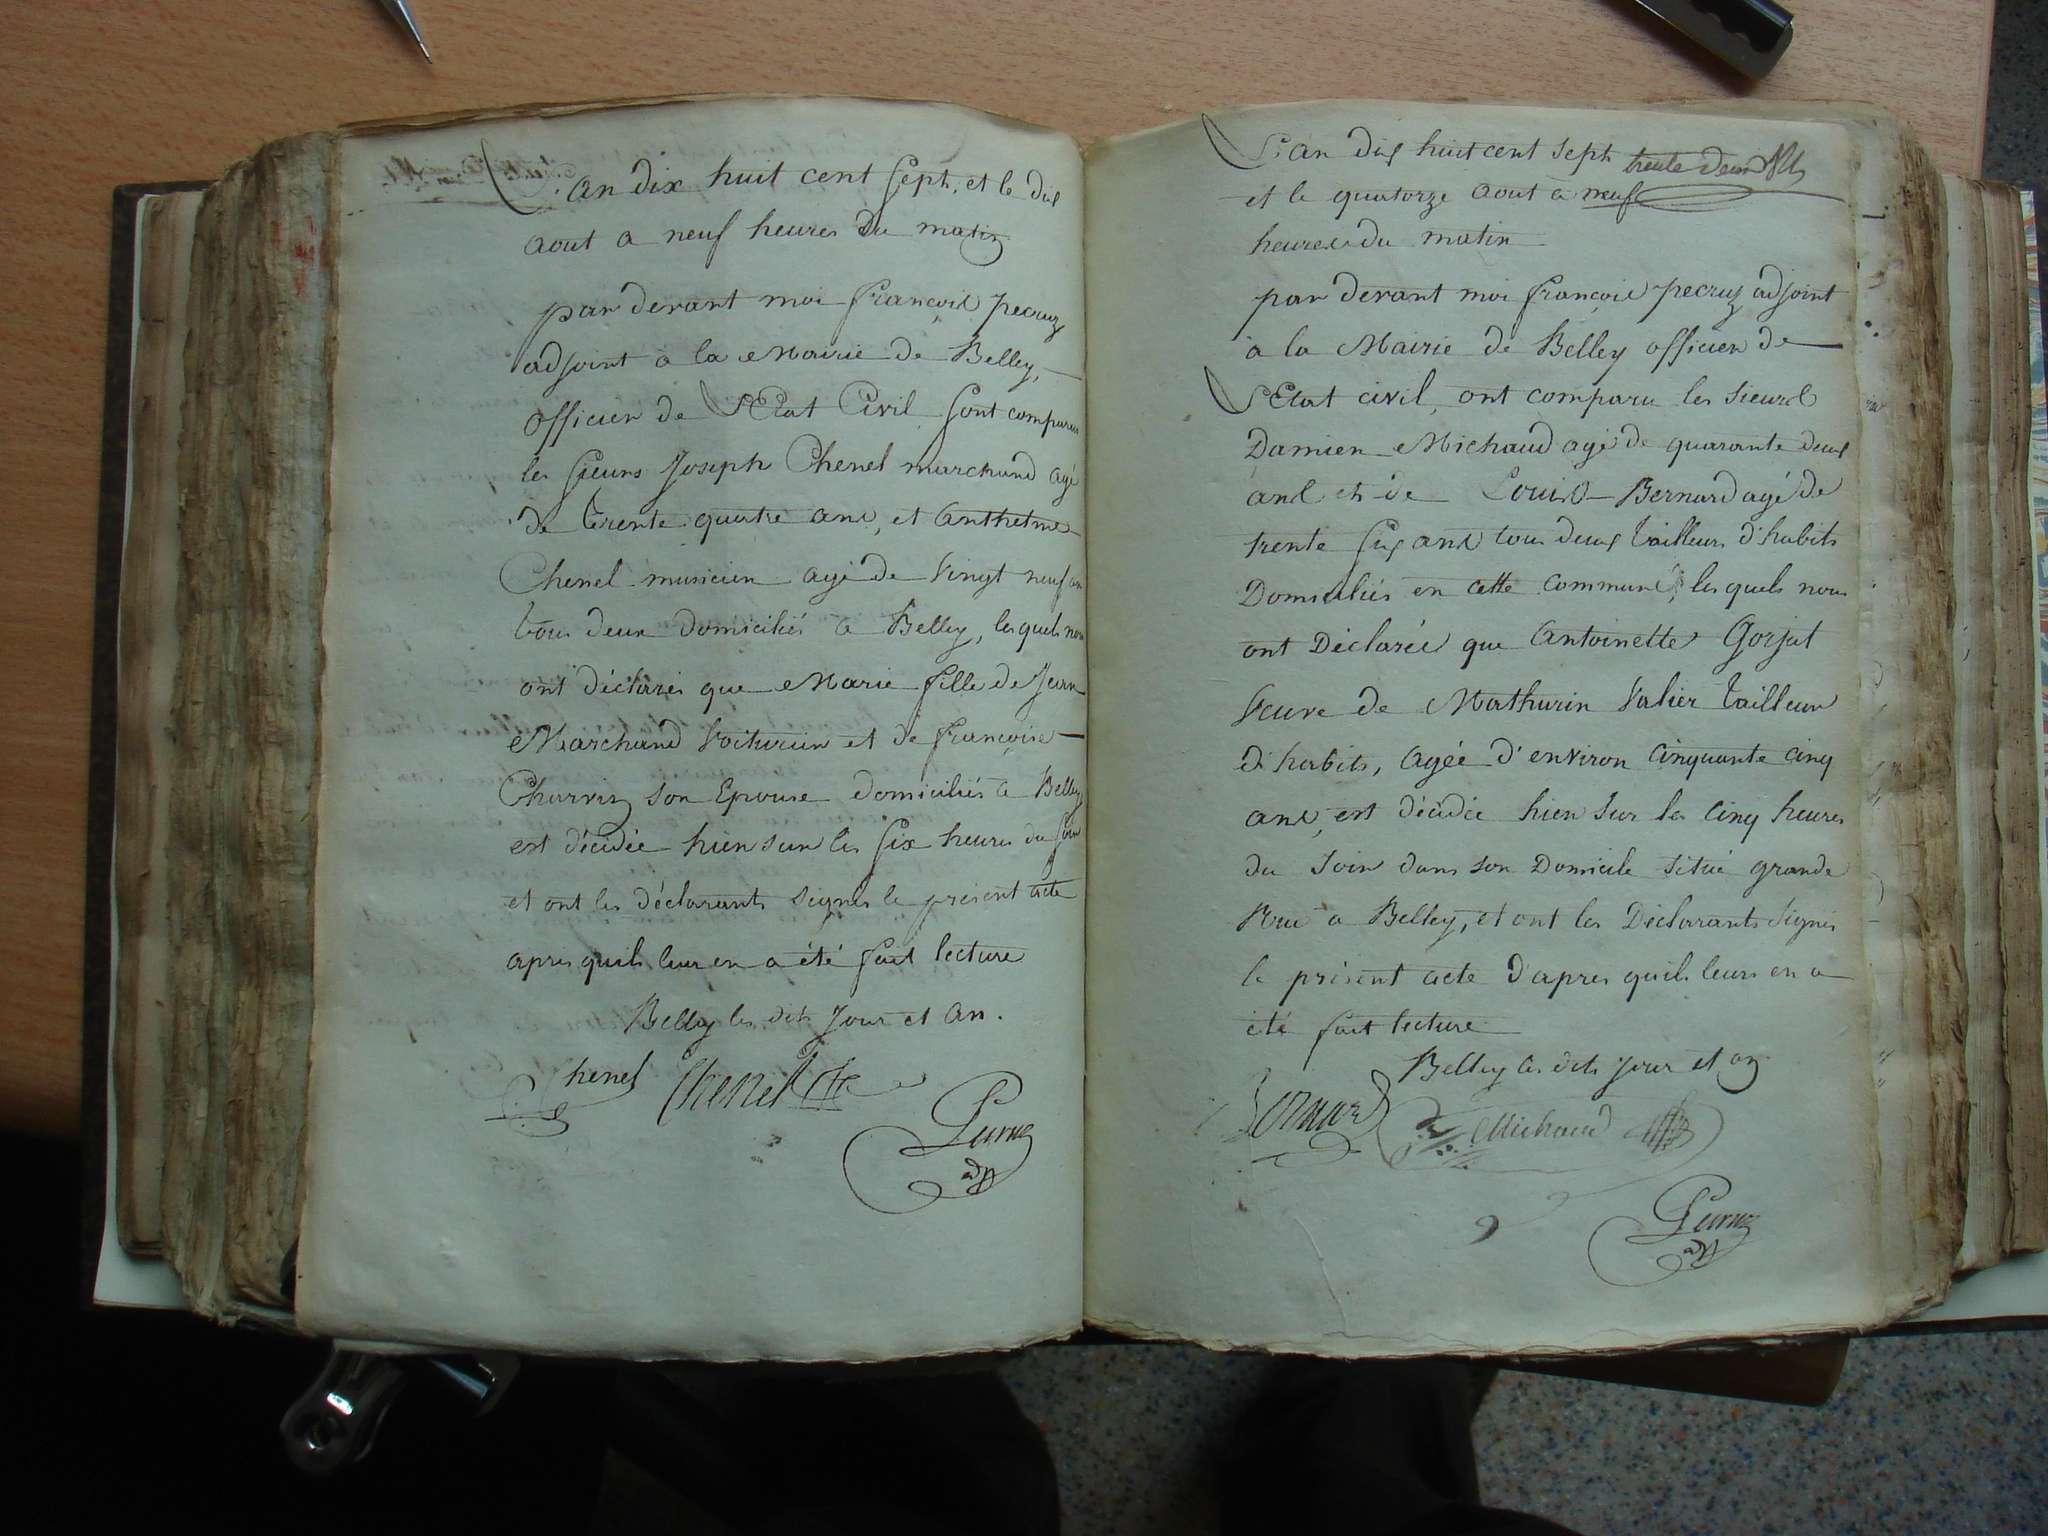 L'an dix huit cent sept, et le dix
aout a neuf heures du matin
par devant moi françois pecruz
adjoint à la Mairie de Belley,
officier de L'Etat Civil sont comparus
les sieurs Joseph Chenel marchand agé
de trente quatre ans, et Anthelme
Chenel musicien agé de vingt neuf ans
tous deux domiciliés a Belley, lesquels nous
ont déclarés que Marie fille de Jean
Marchand voiturier et de françoise
Charvin son Epouse domiciliés a Belley
est décédée hier sur les six heures du soir
et ont les déclarants signés le présent acte
apres quils leur en a été fait lecture
Belley les dits Jour et an.
Chenel Chenel
Pecruz
adjt
L'an dix huit cent sept trente deux
et le quatorze aout a neuf
heures du matin
par devant moi françois pecruz adjoint
à la Mairie de Belley officier de
L'Etat civil, ont comparu les sieurs
Damien Michaud agé de quarante deux
ans et de Louis Bernard agé de
trente six ans tous deux tailleurs d'habits
Domiciliés en cette commune, lesquels nous
ont Déclarés que Antoinette Gorjat
veuve de Mathurin Valier tailleur
d'habits, agée d'environ cinquante cinq
ans, est décédée hier sur les cinq heures
du soir dans son Domicile situé grande
Rue a Belley, et ont les Déclarants signés
le présent acte d'apres quils leurs en a
été fait lecture
Belley les dits jour et an
Bernard Michaud
Pecruz
adjt